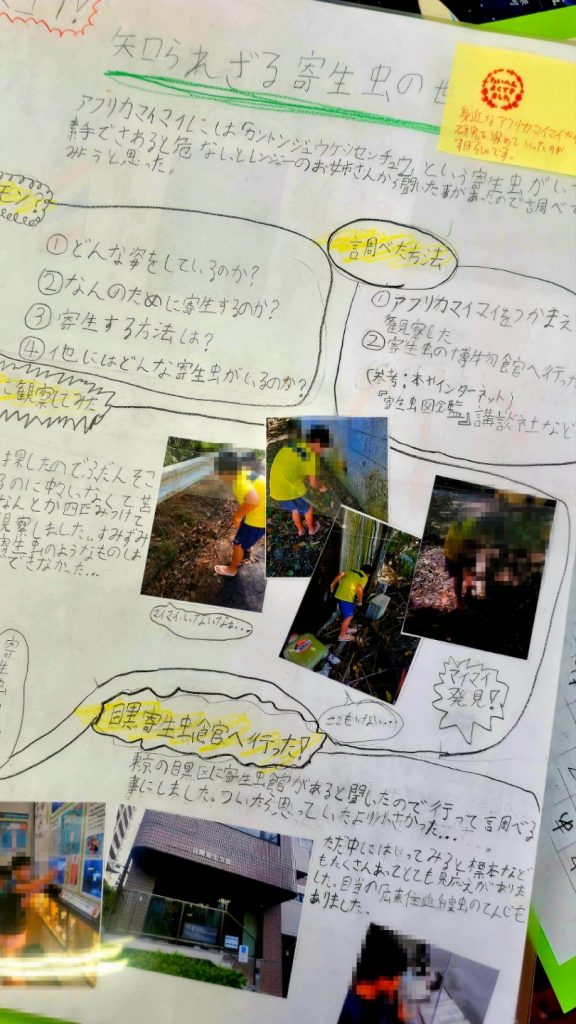 知られざる寄生虫の世
アフリカマイマイには「カントンジュウケツセンチュウ」という寄生虫がいて
素手でさわると危ないとレンジャーのお姉さんから聞いた事があったので調べて
みようと思った。
身近なアフリカマイマイから
研究を深めていったのが
すばらしいです。
①どんな姿をしているのか?
②なんのために寄生するのか?
③寄生する方法は?
④他にはどんな寄生虫がいるのか?
調べた方法
①アフリカマイマイをつかまえ
観察した
②寄生虫の博物館へ行った
(参考:本やインターネット)
『寄生虫図鑑』講談社など
観察してみた
探したのでふだんそこ
るのに中々いなくて苦
なんとか四匹みつけて
観察しました。すみずみ
寄生虫のようなものは
できなかった…
マイマイいないなぁ…
ここもいない…
マイマイ
発見!
寄生
目黒寄生虫館へ行った!
東京の目黒区に寄生虫館があると聞いたので行って調べる
事にしました。ついたら思っていたより小さかった…
ただ中にはいってみると標本など
もたくさんあってとても見応えがありま
した。目当の広東住血線虫のてんじも
ありました。